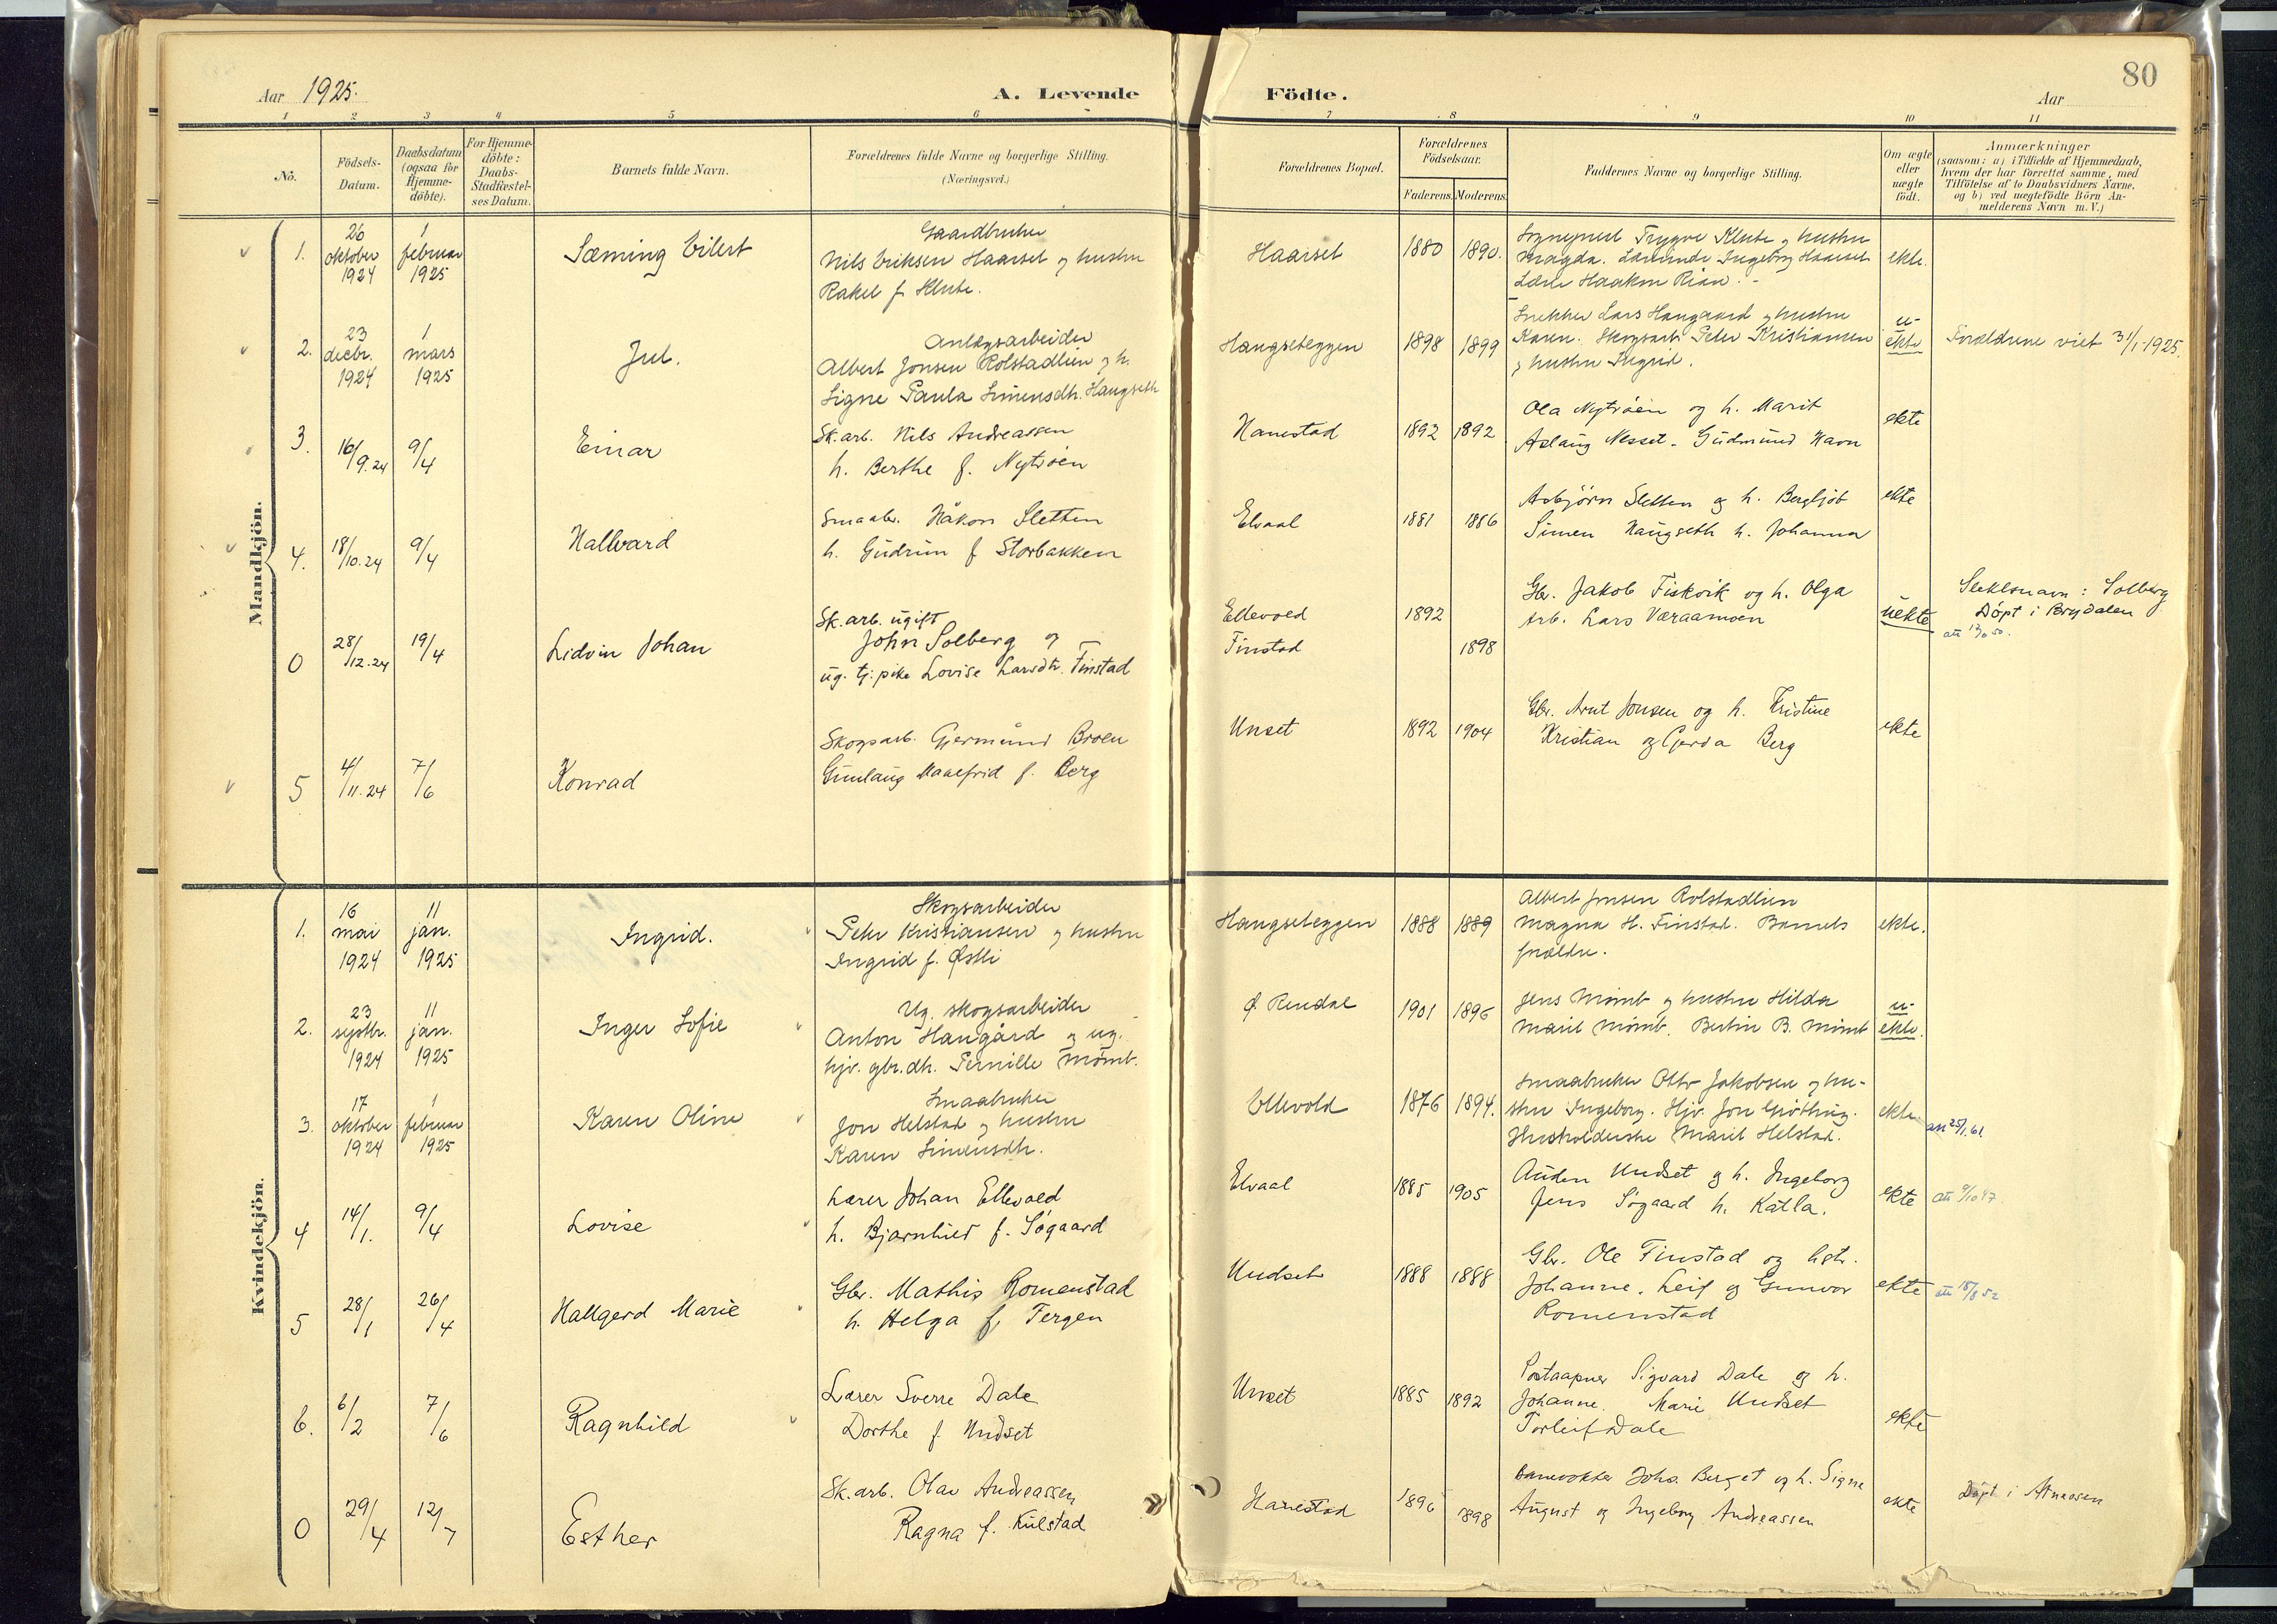 80
Aar 1925. A. Levende Födte. Aar
1 2 3 4 5 6 7 8 9 10 11
No.
Födsels-
Datum.
Daabsdatum
(ogsaa for
Hjemme-
döbte).
For Hjemme-
döbte:
Daabs-
Stadfæstel-
ses Datum.
Barnets fulde Navn.
Forældrenes fulde Navne og borgerlige Stilling.
(Næringsvei.)
Forældrenes Bopæl.
Forældrenes
Födselsaar.
Faderens. Moderens.
Faddernes Navne og borgerlige Stilling.
Om ægte
eller
uægte
födt.
Anmærkninger
(saasom: a) i Tilfælde af Hjemmedaab,
hvem der har forrettet samme, med
Tilföielse af to Daabsvidners Navne.
og b) ved uægtefödte Börn An-
melderens Navn m. V.)
Mandkjön.
1.
26
oktober
1924
1
februar
1925
Sæming Eilert
Gaardbruker
Nils Eriksen Haarset og hustru
Rakel f. Klute.
Haarset
1880 1890.
Trygve Klute og hustru
Magda. Ingeborg Haarset
Lærer Haakon Rian.
ekte.
2.
23
decbr.
1924
1
mars
1925
Jul.
Anlægsarbeider
Albert Jonsen Rolstadlien og h.
Signe Paula Simensdtr. Haugseth
Haugseteggen
1898 1899
Snekker Lars Haugaard og hustru
Karen. Skogsarb. Peter Kristiansen
og hustru Ingrid.
u-
ekte
Forældrene viet 31/1-1925.
3.
16/9.24
9/4
Einar
Sk.arb. Nils Andreassen
h. Berthe f. Nytröen
Hanestad
1892 1892
Ola Nytröen og h. Marit
Aslaug Nesset. Gudmund Havn
ekte
4.
18/10.24
9/4
Hallvard
Smaabr. Håkon Sletten
h. Gudrun f Storbakken
Elvaal
1881 1886
Asbjörn Sletten og h. Bergljot
Simen Haugseth h. Johanna
ekte
0
28/12.24
19/4
Lidvin Johan
Sk.arb. ugift
John Solberg og
ug. tj.pike Lovise Larsdtr. Finstad
Ellevold
Finstad
1892
1898
Gbr. Jakob Fiskvik og h. Olga
Arb. Lars Væraamoen
uekte
Slektsnavn: Solberg
Döpt i Brydalen
5
4/11.24
7/6
Konrad
Skogsarb. Gjermund Broen
Gunlaug Maalfrid f. Berg
Unset
1892 1904
Gbr. Arnt Jonsen og h. Kristine
Kristian og Gerda Berg
ekte
Kvindekjön.
1.
16
mai
1924
11
jan.
1925
Ingrid.
Skogsarbeider
Peter Kristiansen og hustru
Ingrid f. Østli
Haugseteggen
1888 1889
Albert Jonsen Rolstadlien
Magna H. Finstad. Barnets
foreldre.
ekte.
2.
23
septbr.
1924
11
jan.
1925
Inger Sofie
Ug. skogsarbeider
Anton Haugård og ug.
hjv. gbr.dtr. Pernille Mömb.
Ø. Rendal
1901 1896
Jens Mömb og hustru Hilda
Marit Mömb. Bertin B. Mömb
u-
ekte.
3.
17
oktober
1924
1
februar
1925
Karen Oline
Smaabruker
Jon Helstad og hustru
Karen Simensdtr.
Ellevold
1876 1894.
Smaabruker Otto Jakobsen og hu-
stru Ingeborg. Hjv. Jon Grötting.
Husholderske Marit Helstad.
ekte
att 25/1.61
4
14/1.
9/4
Lovise
Lærer Johan Ellevold
h. Bjarnhild f. Sögaard
Elvaal
1885 1905
Auden Undset og h. Ingeborg
Jens Sögaard h. Katla.
ekte
att 9/10 47.
5
28/1
26/4
Hallgerd Marie
Gbr. Mathis Romenstad
h. Helga f. Fergen
Undset
1888 1888
Gbr. Ole Finstad og hstr.
Johanne. Leif og Gunvor
Romenstad
ekte
att 18/8 52
6.
6/2
7/6
Ragnhild
Lærer Sverre Dale
Dorthe f Undset
Unset
1885 1892
Postaapner Sigvard Dale og h.
Johanne. Marie Undset
Torleif Dale
ekte
0
29/4
12/7
Esther
Sk.arb. Olav Andreassen
Ragna f. Kulstad
Hanestad
1896 1898
Banevokter Johs. Berget og h. Signe
August og Ingeborg Andreassen
ekte
Döpt i Atneosen